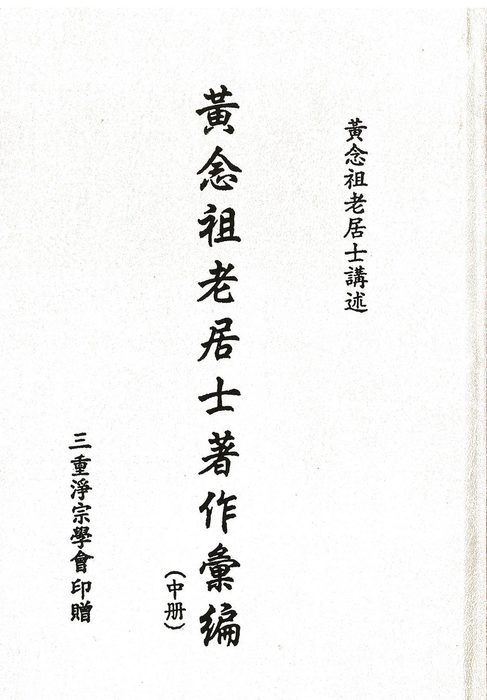 黃念祖老居士講述
黃念祖老居士著作彙編
（中册）
三重淨宗學會印贈